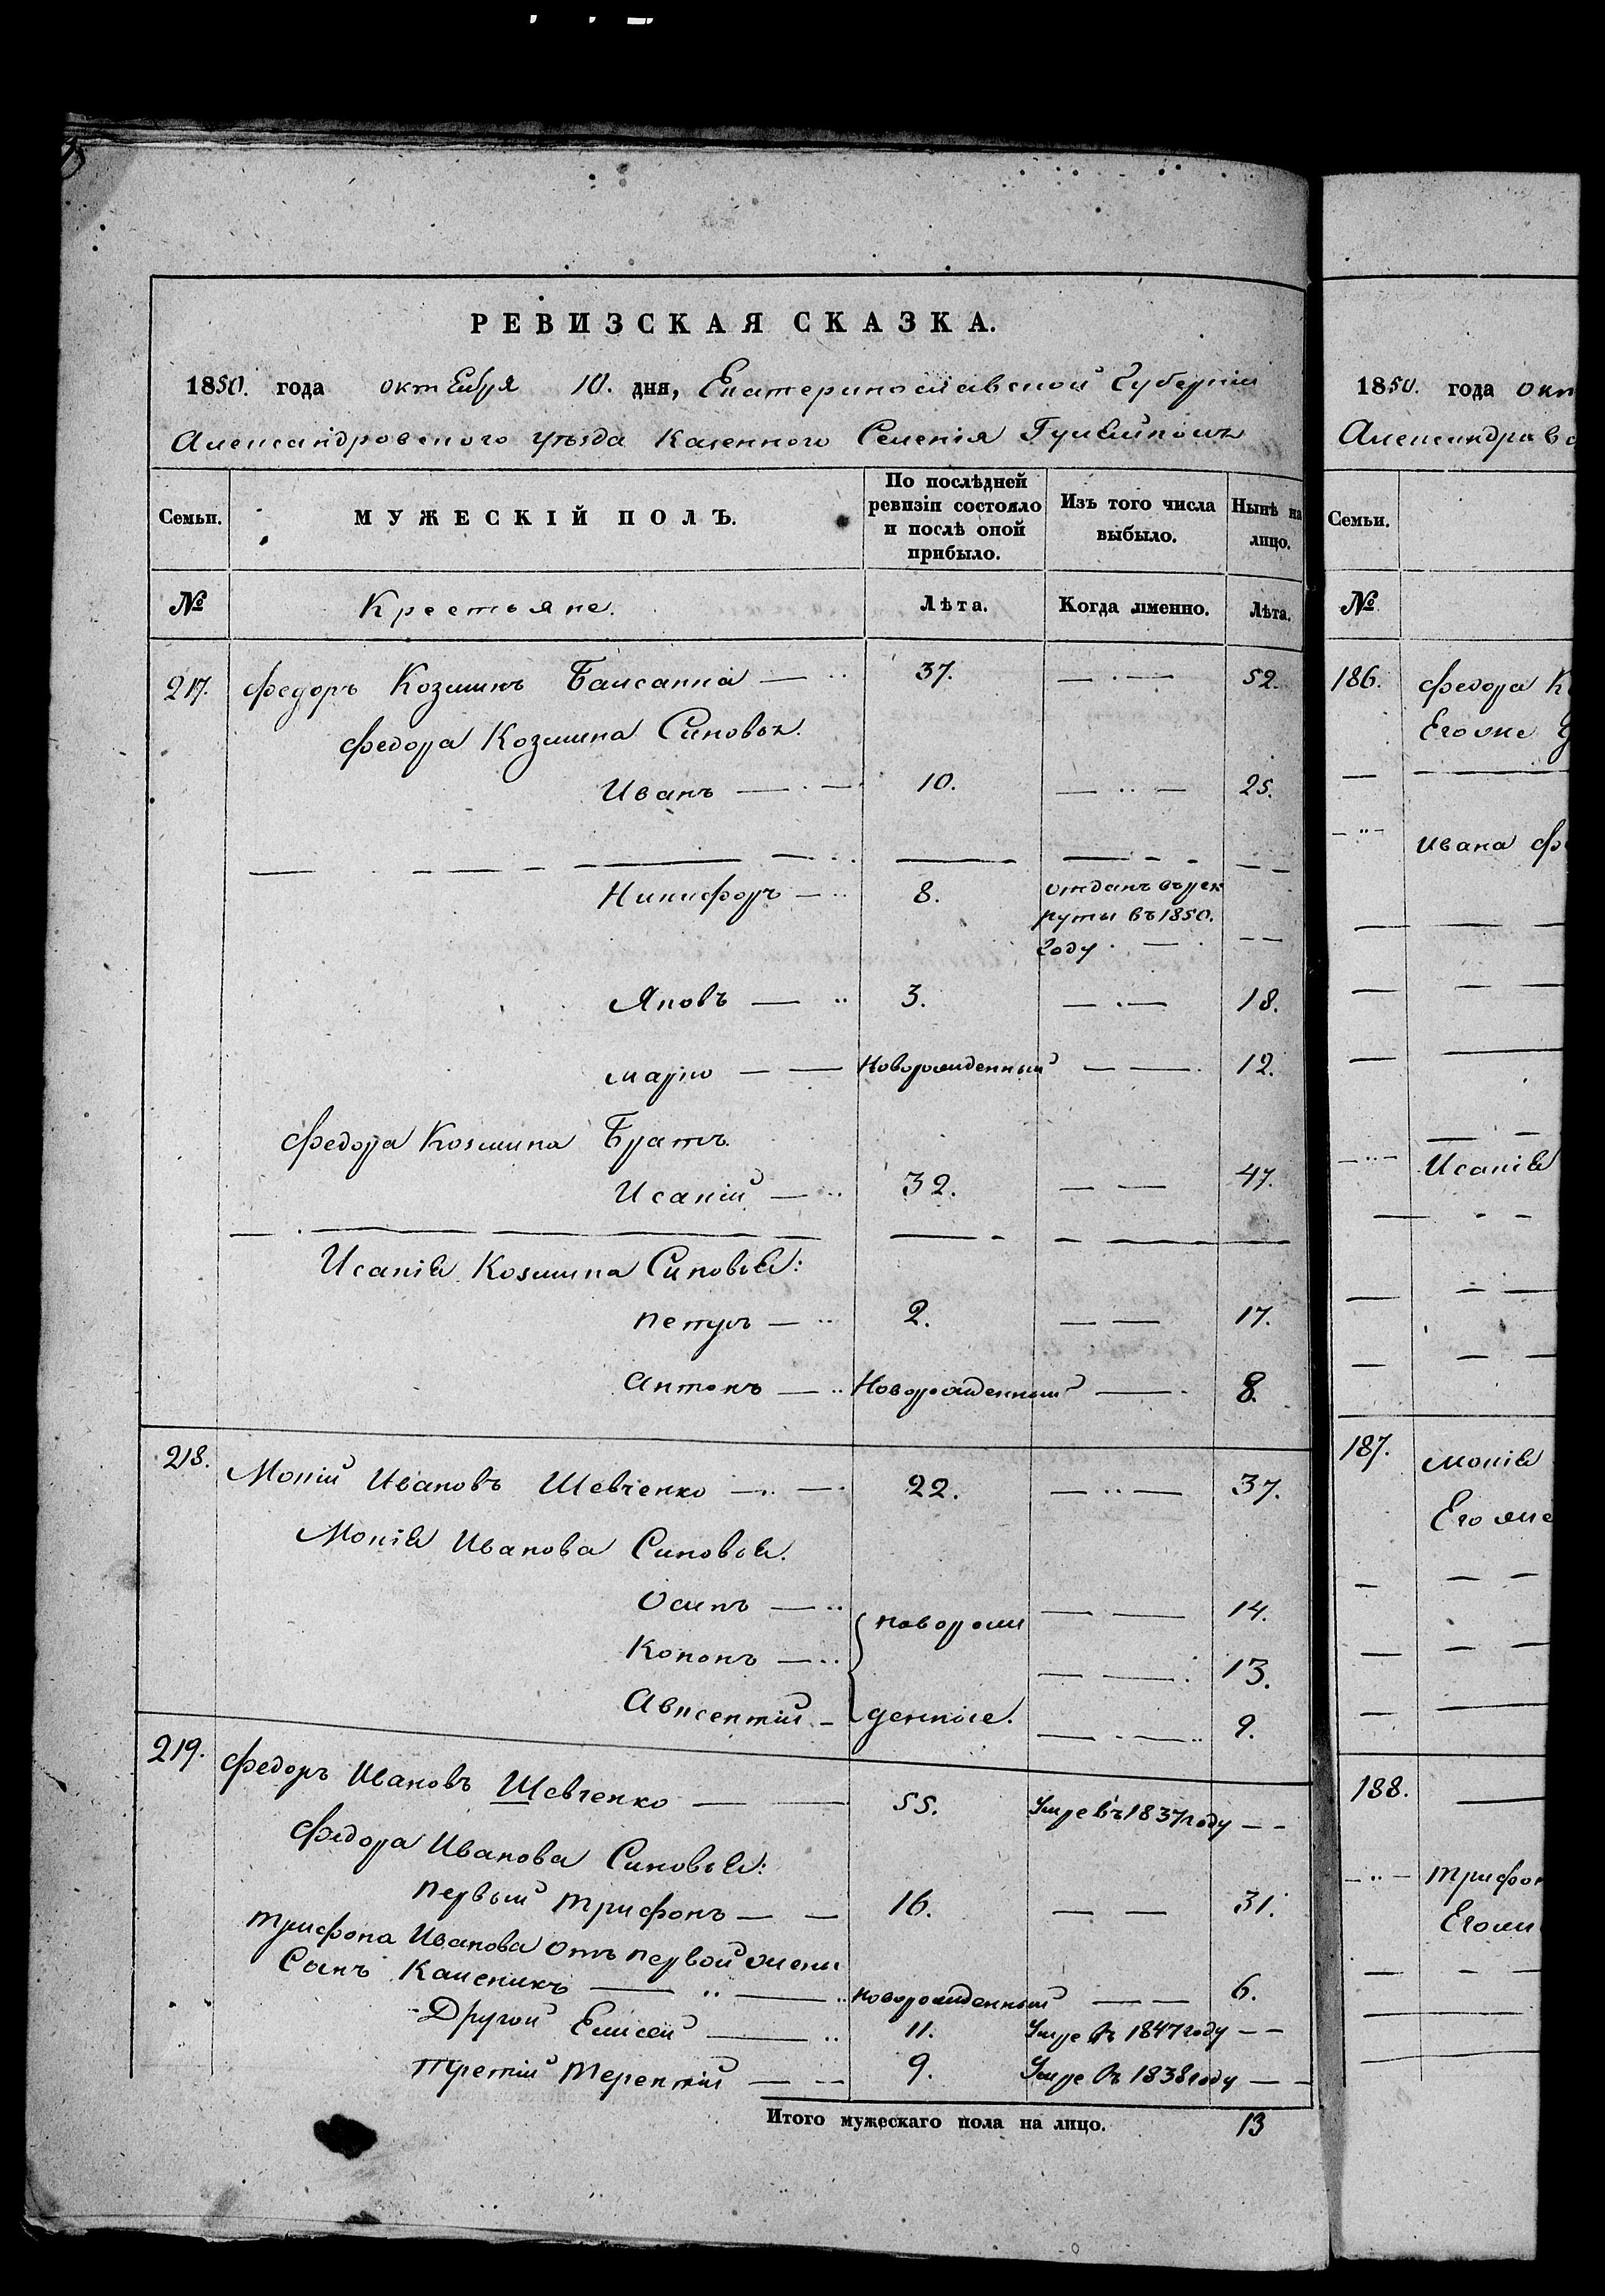 РЕВИЗСКАЯ СКАЗКА.
1850. года октября 10. дня, Екатеринославской Губерніи
Александровского уѣзда Казенного Селенія Гуляйполь
Семьи. МУЖЕСКІЙ ПОЛЪ. По послѣдней ревизіи состояло и послѣ оной прибыло. Изъ того числа выбыло. Нынѣ на лицо.
№ Крестьяне. Лѣта. Когда именно. Лѣта.
217. Федоръ Козминъ 37. 52.
Федора Козмина Синовья.
Иванъ 10. 25.
Никифоръ 8. отданъ въ рек
руты въ 1850.
году
Яковъ 3. 18.
Марко Новорожденный 12.
Федора Козмина Братъ
Исакій 32. 47.
Исакія Козмина Синовья:
Петръ 2. 17.
Антонъ Новорожденный 8.
218. Мокій Ивановъ Шевченко 22. 37.
Мокія Иванова Синовья.
Осипъ новорож 14.
Кононъ 13.
Авксентій денніе. 9.
219. Федоръ Ивановъ Шевченко 55. Умре въ 1837 году
Федора Иванова Синовья:
Первый Трифонъ 16. 31.
Трифона Иванова отъ первой жены
Сынъ Каленикъ новорожденный 6.
Другой Елисей 11. Умре въ 1847 году
Третій Терентій 9. Умре въ 1838 году
Итого мужескаго пола на лицо. 13
1850. года окт
Александров
Семьи.
№
186. Федора К
Его же
Ивана Ф
Исакія
187. Мокія
Его же
188.
Трифон
Его